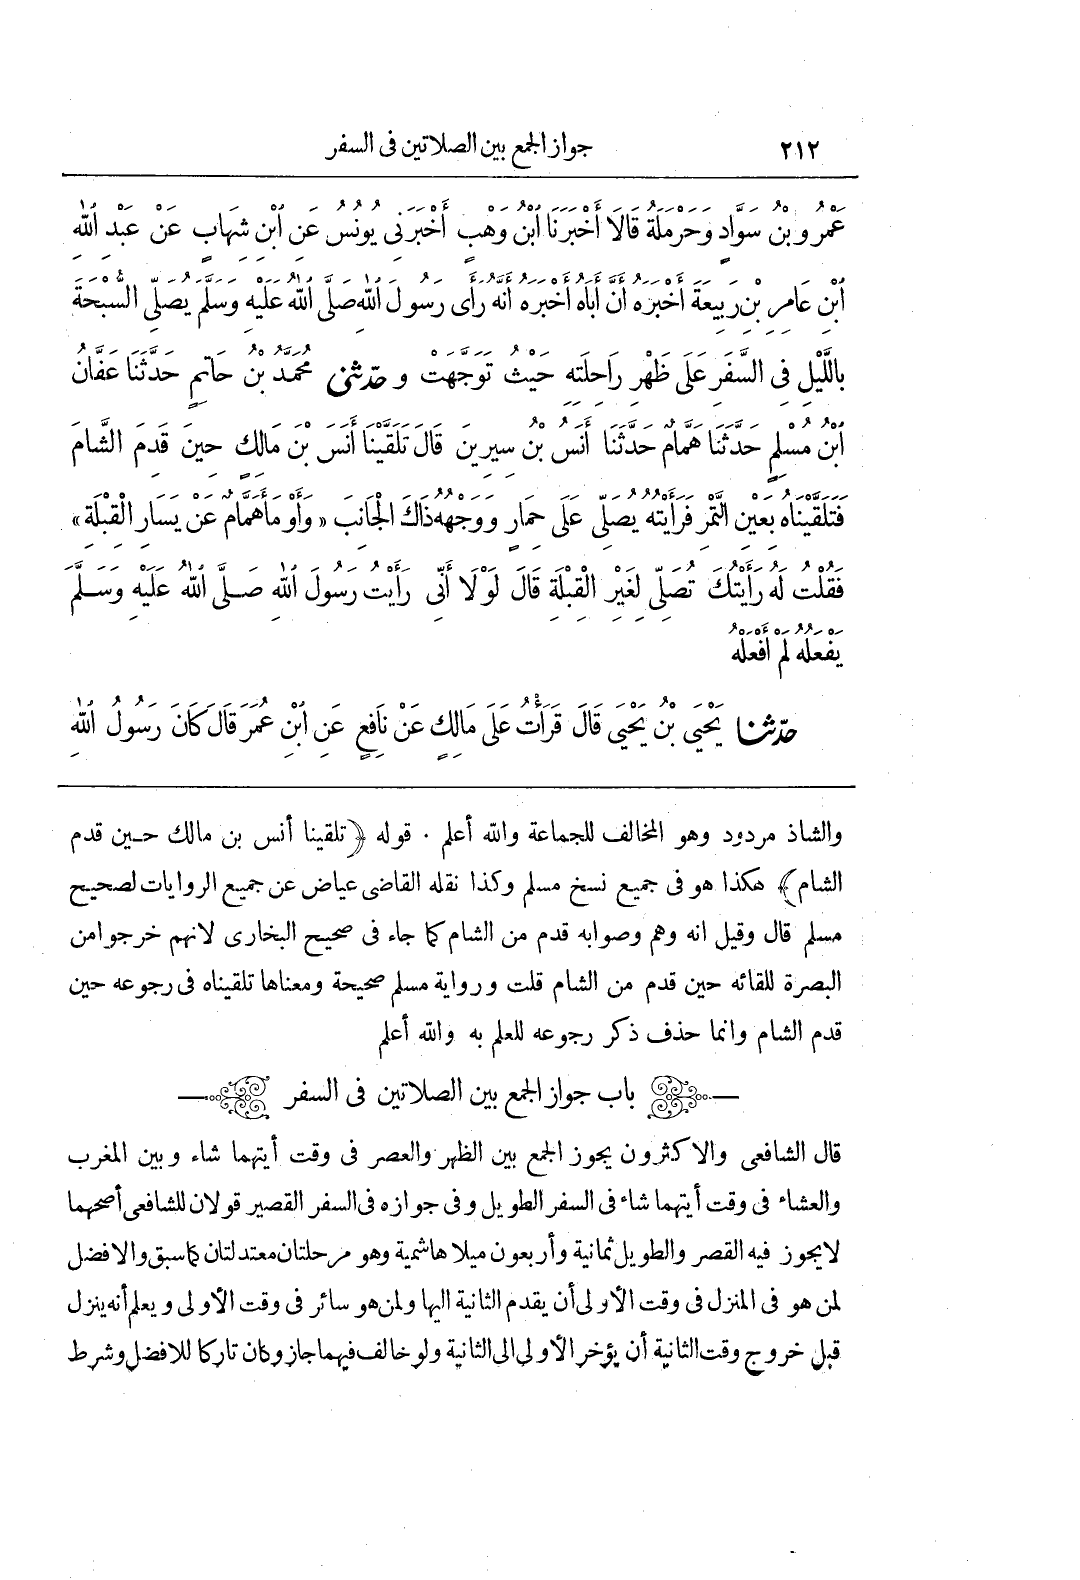 ٢١٢
جواز الجمع بين الصلاتين فى السفر
عَمْرُو بْنُ سَوَّادٍ وَحَرْمَلَةُ قَالَا أَخْبَرَنَا ابْنُ وَهْبٍ أَخْبَرَنِى يُونُسُ عَنِ ابْنِ شِهَابٍ عَنْ عَبْدِ اللهِ
ابْنِ عَامِرِ بْنِ رَبِيعَةَ أَخْبَرَهُ أَنَّ أَبَاهُ أَخْبَرَهُ أَنَّهُ رَأَى رَسُولَ اللهِ صَلَّى اللهُ عَلَيْهِ وَسَلَّمَ يُصَلِّى السُّبْحَةَ
بِاللَّيْلِ فِى السَّفَرِ عَلَى ظَهْرِ رَاحِلَتِهِ حَيْثُ تَوَجَّهَتْ و حدّثنى مُحَمَّدُ بْنُ حَاتِمٍ حَدَّثَنَا عَفَّانُ
ابْنُ مُسْلِمٍ حَدَّثَنَا هَمَّامٌ حَدَّثَنَا أَنَسُ بْنُ سِيرِينَ قَالَ تَلَقَّيْنَا أَنَسَ بْنَ مَالِكٍ حِينَ قَدِمَ الشَّامَ
فَتَلَقَّيْنَاهُ بِعَيْنِ التَّمْرِ فَرَأَيْتُهُ يُصَلِّى عَلَى حِمَارٍ وَوَجْهُهُ ذَاكَ الْجَانِبَ «وَأَوْمَأَ هَمَّامٌ عَنْ يَسَارِ الْقِبْلَةِ»
فَقُلْتُ لَهُ رَأَيْتُكَ تُصَلِّى لِغَيْرِ الْقِبْلَةِ قَالَ لَوْلَا أَنِّى رَأَيْتُ رَسُولَ اللهِ صَلَّى اللهُ عَلَيْهِ وَسَلَّمَ
يَفْعَلُهُ لَمْ أَفْعَلْهُ
حدّثنا يَحْيَى بْنُ يَحْيَى قَالَ قَرَأْتُ عَلَى مَالِكٍ عَنْ نَافِعٍ عَنِ ابْنِ عُمَرَ قَالَ كَانَ رَسُولُ اللهِ
والشاذ مردود وهو المخالف للجماعة والله أعلم . قوله ﴿تلقينا أنس بن مالك حين قدم
الشام﴾ هكذا هو فى جميع نسخ مسلم وكذا نقله القاضى عياض عن جميع الروايات لصحيح
مسلم قال وقيل انه وهم وصوابه قدم من الشام كما جاء فى صحيح البخارى لانهم خرجوا من
البصرة للقائه حين قدم من الشام قلت ورواية مسلم صحيحة ومعناها تلقيناه فى رجوعه حين
قدم الشام وانما حذف ذكر رجوعه للعلم به والله أعلم
باب جواز الجمع بين الصلاتين فى السفر
قال الشافعى والاكثرون يجوز الجمع بين الظهر والعصر فى وقت أيتهما شاء وبين المغرب
والعشاء فى وقت أيتهما شاء فى السفر الطويل وفى جوازه فى السفر القصير قولان للشافعى أصحهما
لايجوز فيه القصر والطويل ثمانية وأربعون ميلا هاشمية وهو مرحلتان معتدلتان كما سبق والافضل
لمن هو فى المنزل فى وقت الأولى أن يقدم الثانية اليها ولمن هو سائر فى وقت الأولى ويعلم أنه ينزل
قبل خروج وقت الثانية أن يؤخر الأولى الى الثانية ولو خالف فيهما جاز وكان تاركا للافضل وشرط